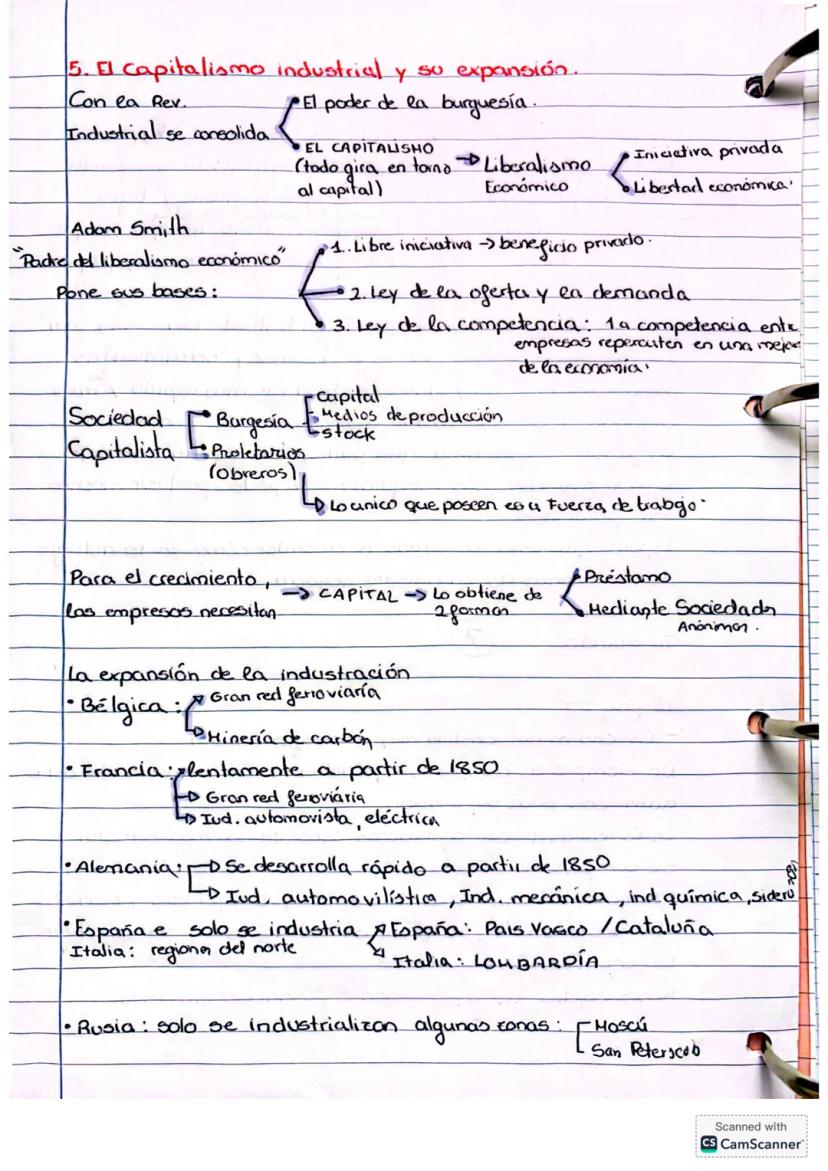 5. El capitalismo industrial y su expansión.
Con la Rev.
Industrial se consolida
El poder de la burguesía.
EL CAPITALISMO
(todo gira en torno
al capital)
Liberalismo
Económico
Iniciativa privada
Libertad económica.
Adam Smith
"Padre del liberalismo económico"
Pone sus bases:
1. Libre iniciativa → beneficio privado.
2. Ley de la oferta y la demanda
3. Ley de la competencia: la competencia entre
empresas repercuten en una mejor
de la economía.
Sociedad
Capitalista
Burgesía
Capital
Medios de producción
stock
Proletarios
(Obreros)
Lo unico que poseen es u Fuerza de trabajo.
Para el crecimiento,
las empresas necesitan
→ CAPITAL → Lo obtiene de
2 formas
Préstamo
Mediante Sociedades
Anónimas.
La expansión de la industración
• Bélgica:
Gran red ferroviaría
Minería de carbón
• Francia: lentamente a partir de 1850
Gran red ferroviária
Iud. automovista, eléctrica
• Alemania: Se desarrolla rápido a partir de 1850
Iud. automovilística, Ind. mecánica, ind química, sidero
• España e solo se industria
Italia: regiones del norte
España: Pais Vasco / Cataluña
Italia: LOMBARDÍA
• Rusia: solo se industrializan algunas zonas:
Moscú
San Peterscob
Scanned with
CS CamScanner